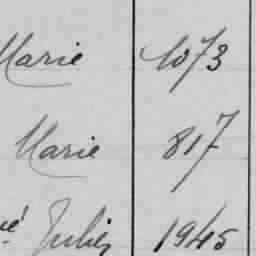 Marie 1073
Marie 817
ué Julien 1945